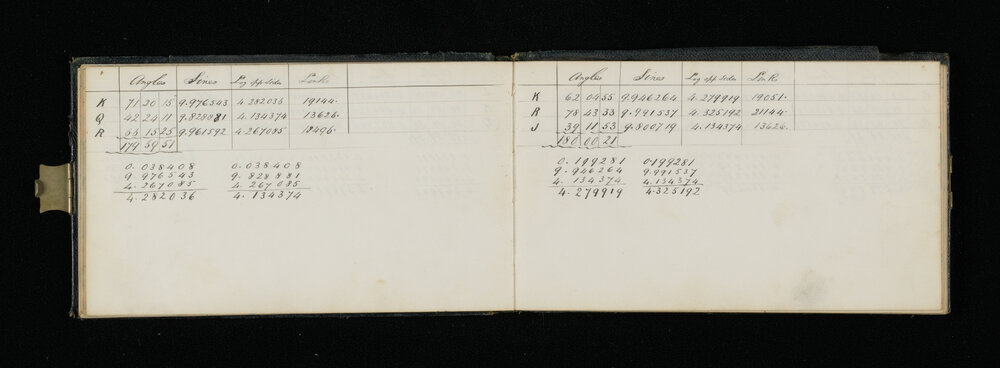 Angles Sines Log opp sides Links
K 71 20 15 9.976543 4.282036 19144.
Q 42 24 11 9.828881 4.134374 13626.
R 66 15 25 9.961592 4.267085 18496.
179 59 51
0. 038408 0. 038408
9 976543 9. 828881
4. 267085 4. 267085
4. 282036 4. 134374
Angles Sines Log opp sides Links
K 62 04 55 9.946264 4.279919 19051.
R 78 43 33 9.991537 4.325192 21144.
J 39 11 53 9.800719 4.134374 13626.
180 00 21
0. 199281 0.199281
9. 946264 9.991537
4. 134374 4.134374
4. 279919 4.325192